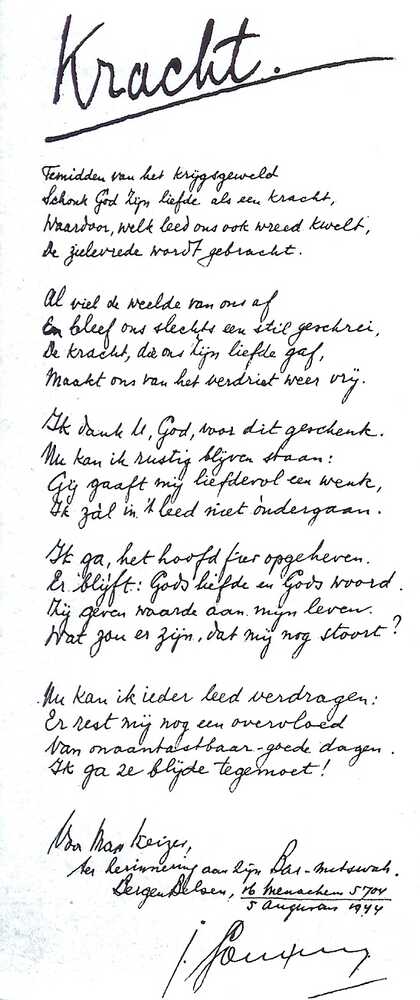 Kracht.
Temidden van het krijgsgeweld
Schonk God Zijn liefde als een kracht,
Waardoor, welk leed ons ook wreed kwelt,
De zielevrede wordt gebracht.
Al viel de weelde van ons af
En bleef ons slechts een stil geschrei,
De kracht, die ons Zijn liefde gaf,
Maakt ons van het verdriet weer vrij.
Ik dank U, God, voor dit geschenk.
Nu kan ik rustig blijven staan:
Gij gaaft mij liefdevol een wenk,
Ik zàl in 't leed niet òndergaan.
Ik ga, het hoofd fier opgeheven.
Er blijft: Gods liefde en Gods woord.
Zij geven waarde aan mijn leven.
Wat zou er zijn, dat mij nog stoort?
Nu kan ik ieder leed verdragen:
Er rest mij nog een overvloed
Van onaantastbaar-goede dagen.
Ik ga ze blijde tegemoet!
Voor Max Keizer,
ter herinnering aan zijn Bar-mitswah.
Bergen Belsen, 16 Menachem 5704
5 Augustus 1944
J.